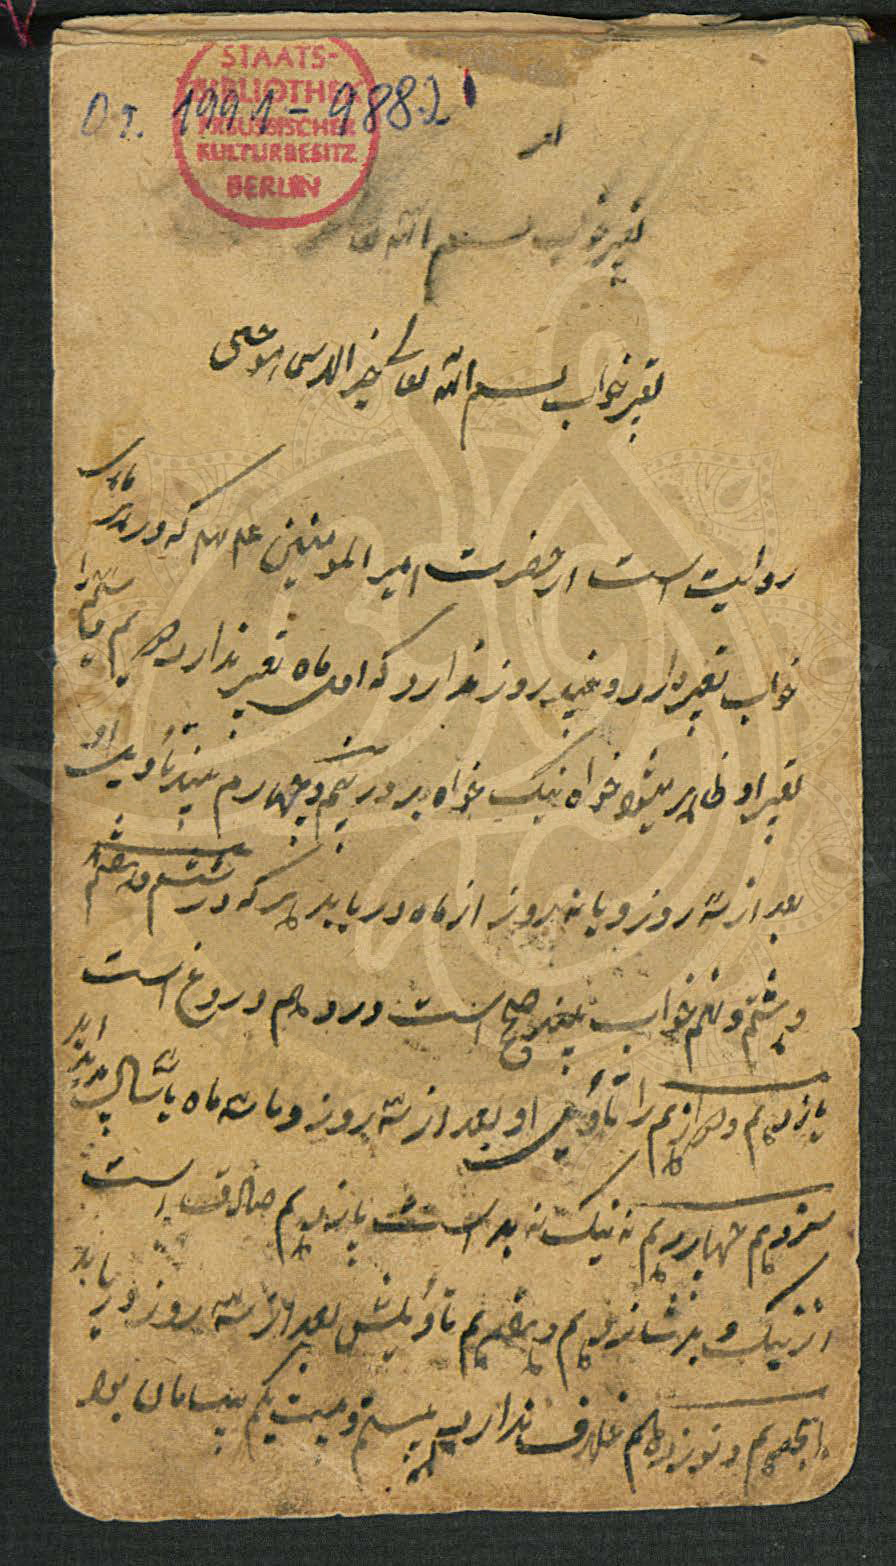 STAATS-
BIBLIOTHEK
PREUSSISCHER
KULTURBESITZ
BERLIN
Or. 1991-9882
تعبیر خواب بسم الله
تعبیر خواب بسم الله تعالی خیر
روایت است از حضرت امیر المومنین علیه السلام که در
خواب تعبیر دارد و چند روز ندارد که اول ماه تعبیر ندارد دویم
تعبیر او ظاهر میشود خواه نیک خواه بد در سیم و چهارم تاویل او
بعد از سه روز و یا نه روز از ماه دریابد هر که در ششم و هفتم
و هشتم و نهم خواب بیند صحیح است در دهم دروغ است
یازدهم و دوازدهم را تاویل او بعد از سه روز و یا سه ماه یا
سیزدهم چهاردهم نه نیک نه بد است پانزدهم صادق است
از نیک و بد شانزدهم و هفدهم تاویلش بعد از سه روز دریابد
هجدهم و نوزدهم خلاف ندارد بیستم و بیست یکم پشیمان بود